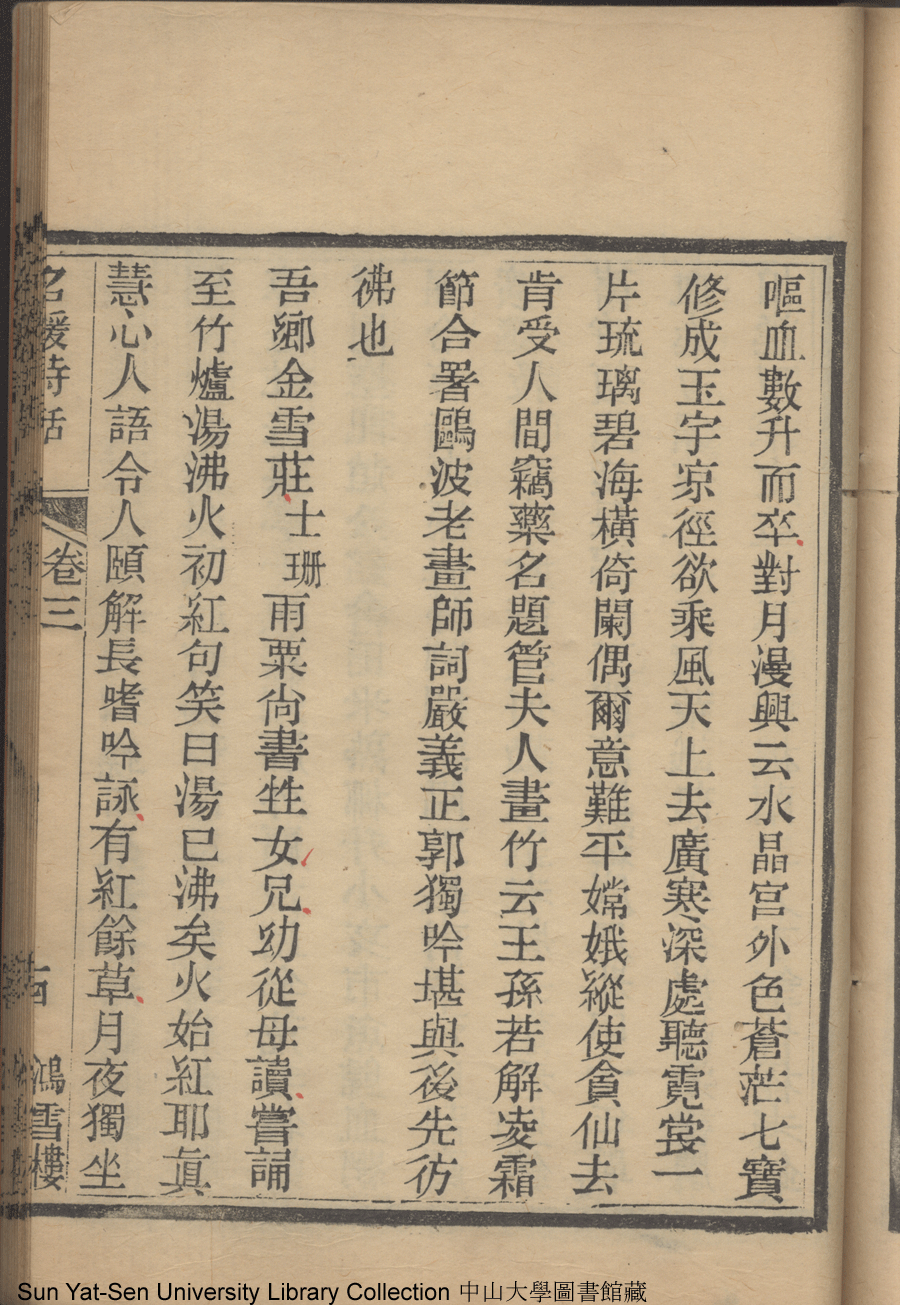 嘔血數升而卒對月漫興云水晶宫外色蒼茫七寶
修成玉宇凉徑欲乘風天上去廣寒深處聽霓裳一
片琉璃碧海橫倚闌偶爾意難平嫦娥縱使貪仙去
肯受人間竊藥名題管夫人畫竹云王孫若解凌霜
節合署鷗波老畫師詞嚴義正郭獨吟堪與後先彷
彿也
吾鄉金雪莊士珊雨粟尚書甡女兄幼從母讀嘗誦
至竹爐湯沸火初紅句笑曰湯已沸矣火始紅耶眞
慧心人語令人頤解長嗜吟詠有紅餘草月夜獨坐
名媛詩話 卷三 鴻雪樓
Sun Yat-Sen University Library Collection 中山大學圖書館藏